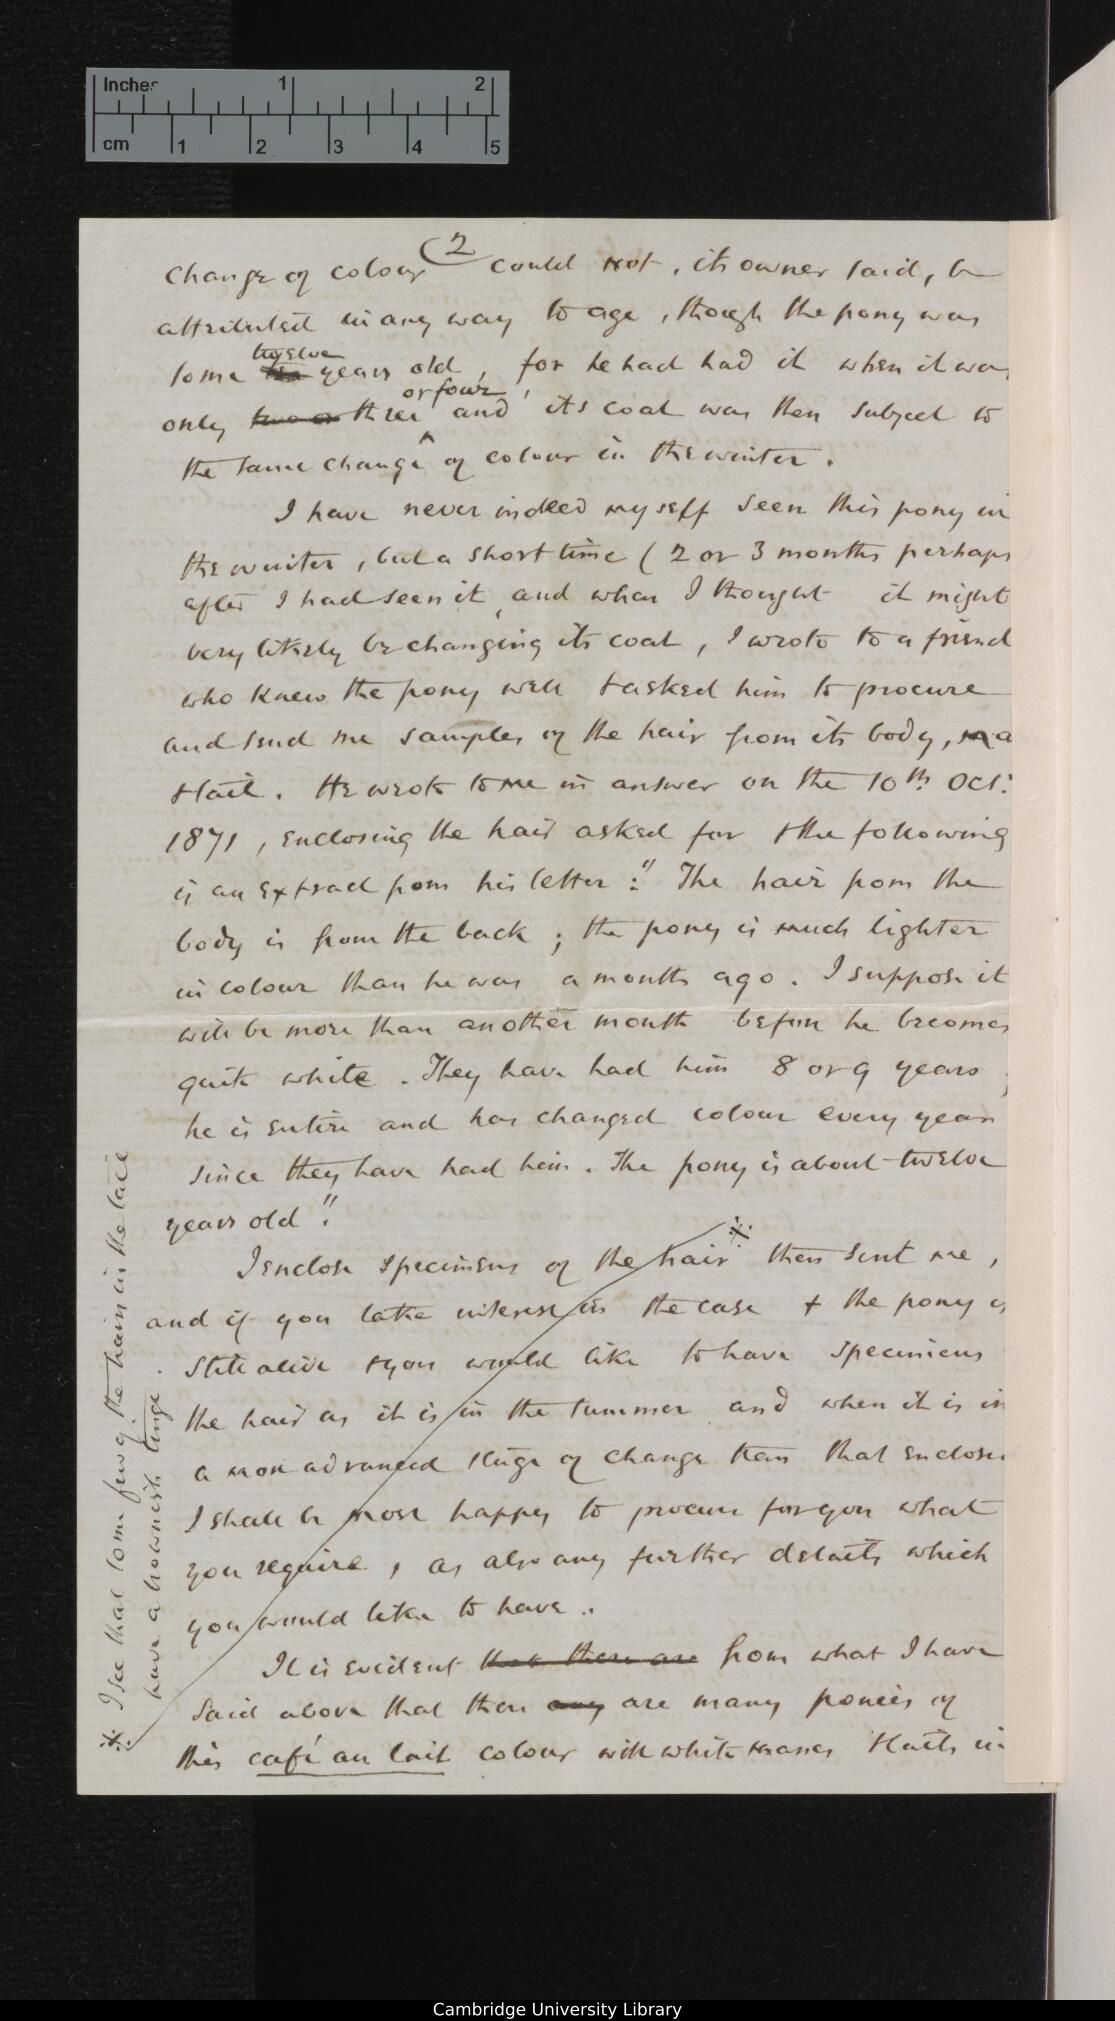 Inches 1 2
cm 1 2 3 4 5
(2
change of colour could not, its owner said, be
attributed in any way to age, though the pony was
twelve
some ten years old, for he had had it when it was
or four
only two or three ^ and its coat was then subject to
the same change of colour in the winter.
I have never indeed myself seen this pony in
the winter, but a short time (2 or 3 months perhaps
after I had seen it, and when I thought it might
very likely be changing its coat, I wrote to a friend
who knew the pony well & asked him to procure
and send me samples of the hair from its body, ma
& tail. He wrote to me in answer on the 10th Oct:
1871, enclosing the hair asked for & the following
is an extract from his letter: "The hair from the
body is from the back; the pony is much lighter
in colour than he was a month ago. I suppose it
will be more than another month before he becomes
quite white. They have had him 8 or 9 years;
he is entire and has changed colour every year
since they have had him. The pony is about twelve
years old".
I enclose specimens of the hair※ then sent me,
and if you take interest in the case & the pony is
still alive & you would like to have specimens
the hair as it is in the summer and when it is in
a more advanced stage of change than that enclose
I shall be most happy to procure for you what
you require, as also any further details which
you would like to have.
It is evident that there are from what I have
said above that there any are many ponies of
this café au lait colour with white manes & tails in
※ I see that some few of the hairs in the tail
have a brownish tinge.
Cambridge University Library